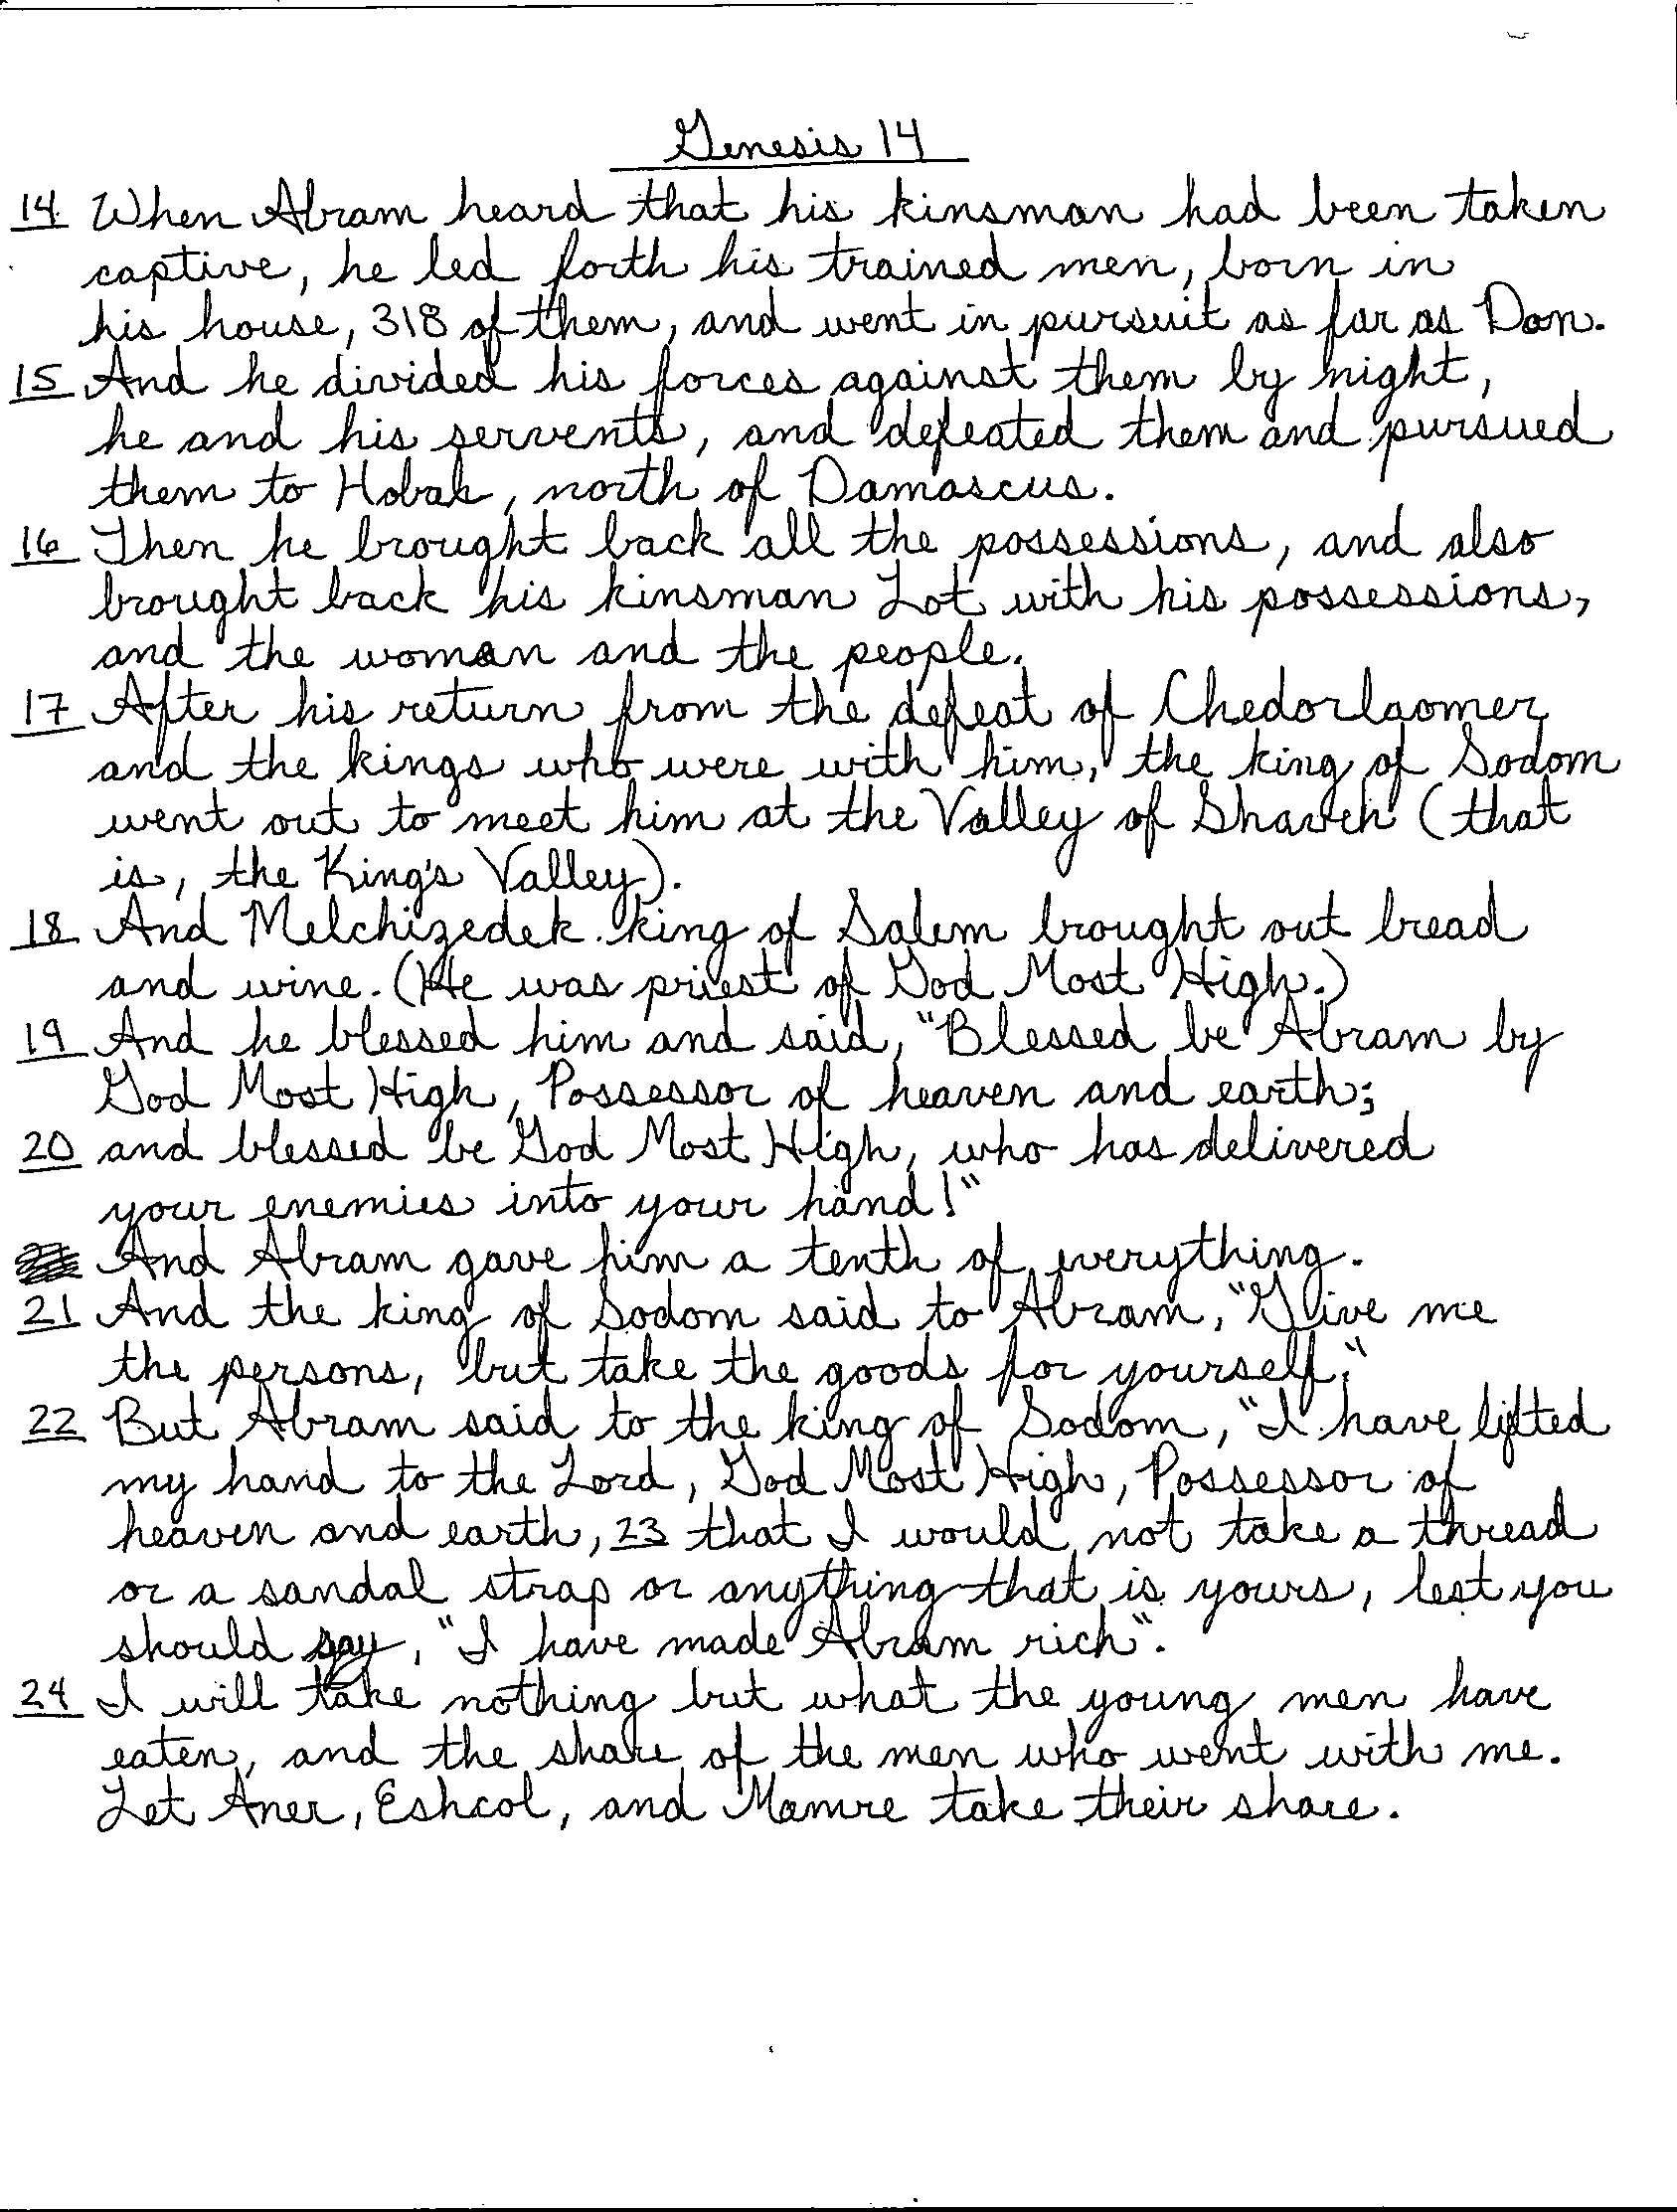 Genesis 14
14 When Abram heard that his kinsman had been taken
captive, he led forth his trained men, born in
his house, 318 of them, and went in pursuit as far as Dan.
15 And he divided his forces against them by night,
he and his servents, and defeated them and pursued
them to Hobah, north of Damascus.
16 Then he brought back all the possessions, and also
brought back his kinsman Lot with his possessions,
and the woman and the people.
17 After his return from the defeat of Chedorlaomer
and the kings who were with him, the king of Sodom
went out to meet him at the Valley of Shaveh (that
is, the King's Valley).
18 And Melchizedek king of Salem brought out bread
and wine. (He was priest of God Most High.)
19 And he blessed him and said, "Blessed be Abram by
God Most High, Possessor of heaven and earth;
20 and blessed be God Most High, who has delivered
your enemies into your hand!"
And Abram gave him a tenth of everything.
21 And the king of Sodom said to Abram, "Give me
the persons, but take the goods for yourself."
22 But Abram said to the king of Sodom, "I have lifted
my hand to the Lord, God Most High, Possessor of
heaven and earth, 23 that I would not take a thread
or a sandal strap or anything that is yours, lest you
should say, "I have made Abram rich".
24 I will take nothing but what the young men have
eaten, and the share of the men who went with me.
Let Aner, Eshcol, and Mamre take their share.